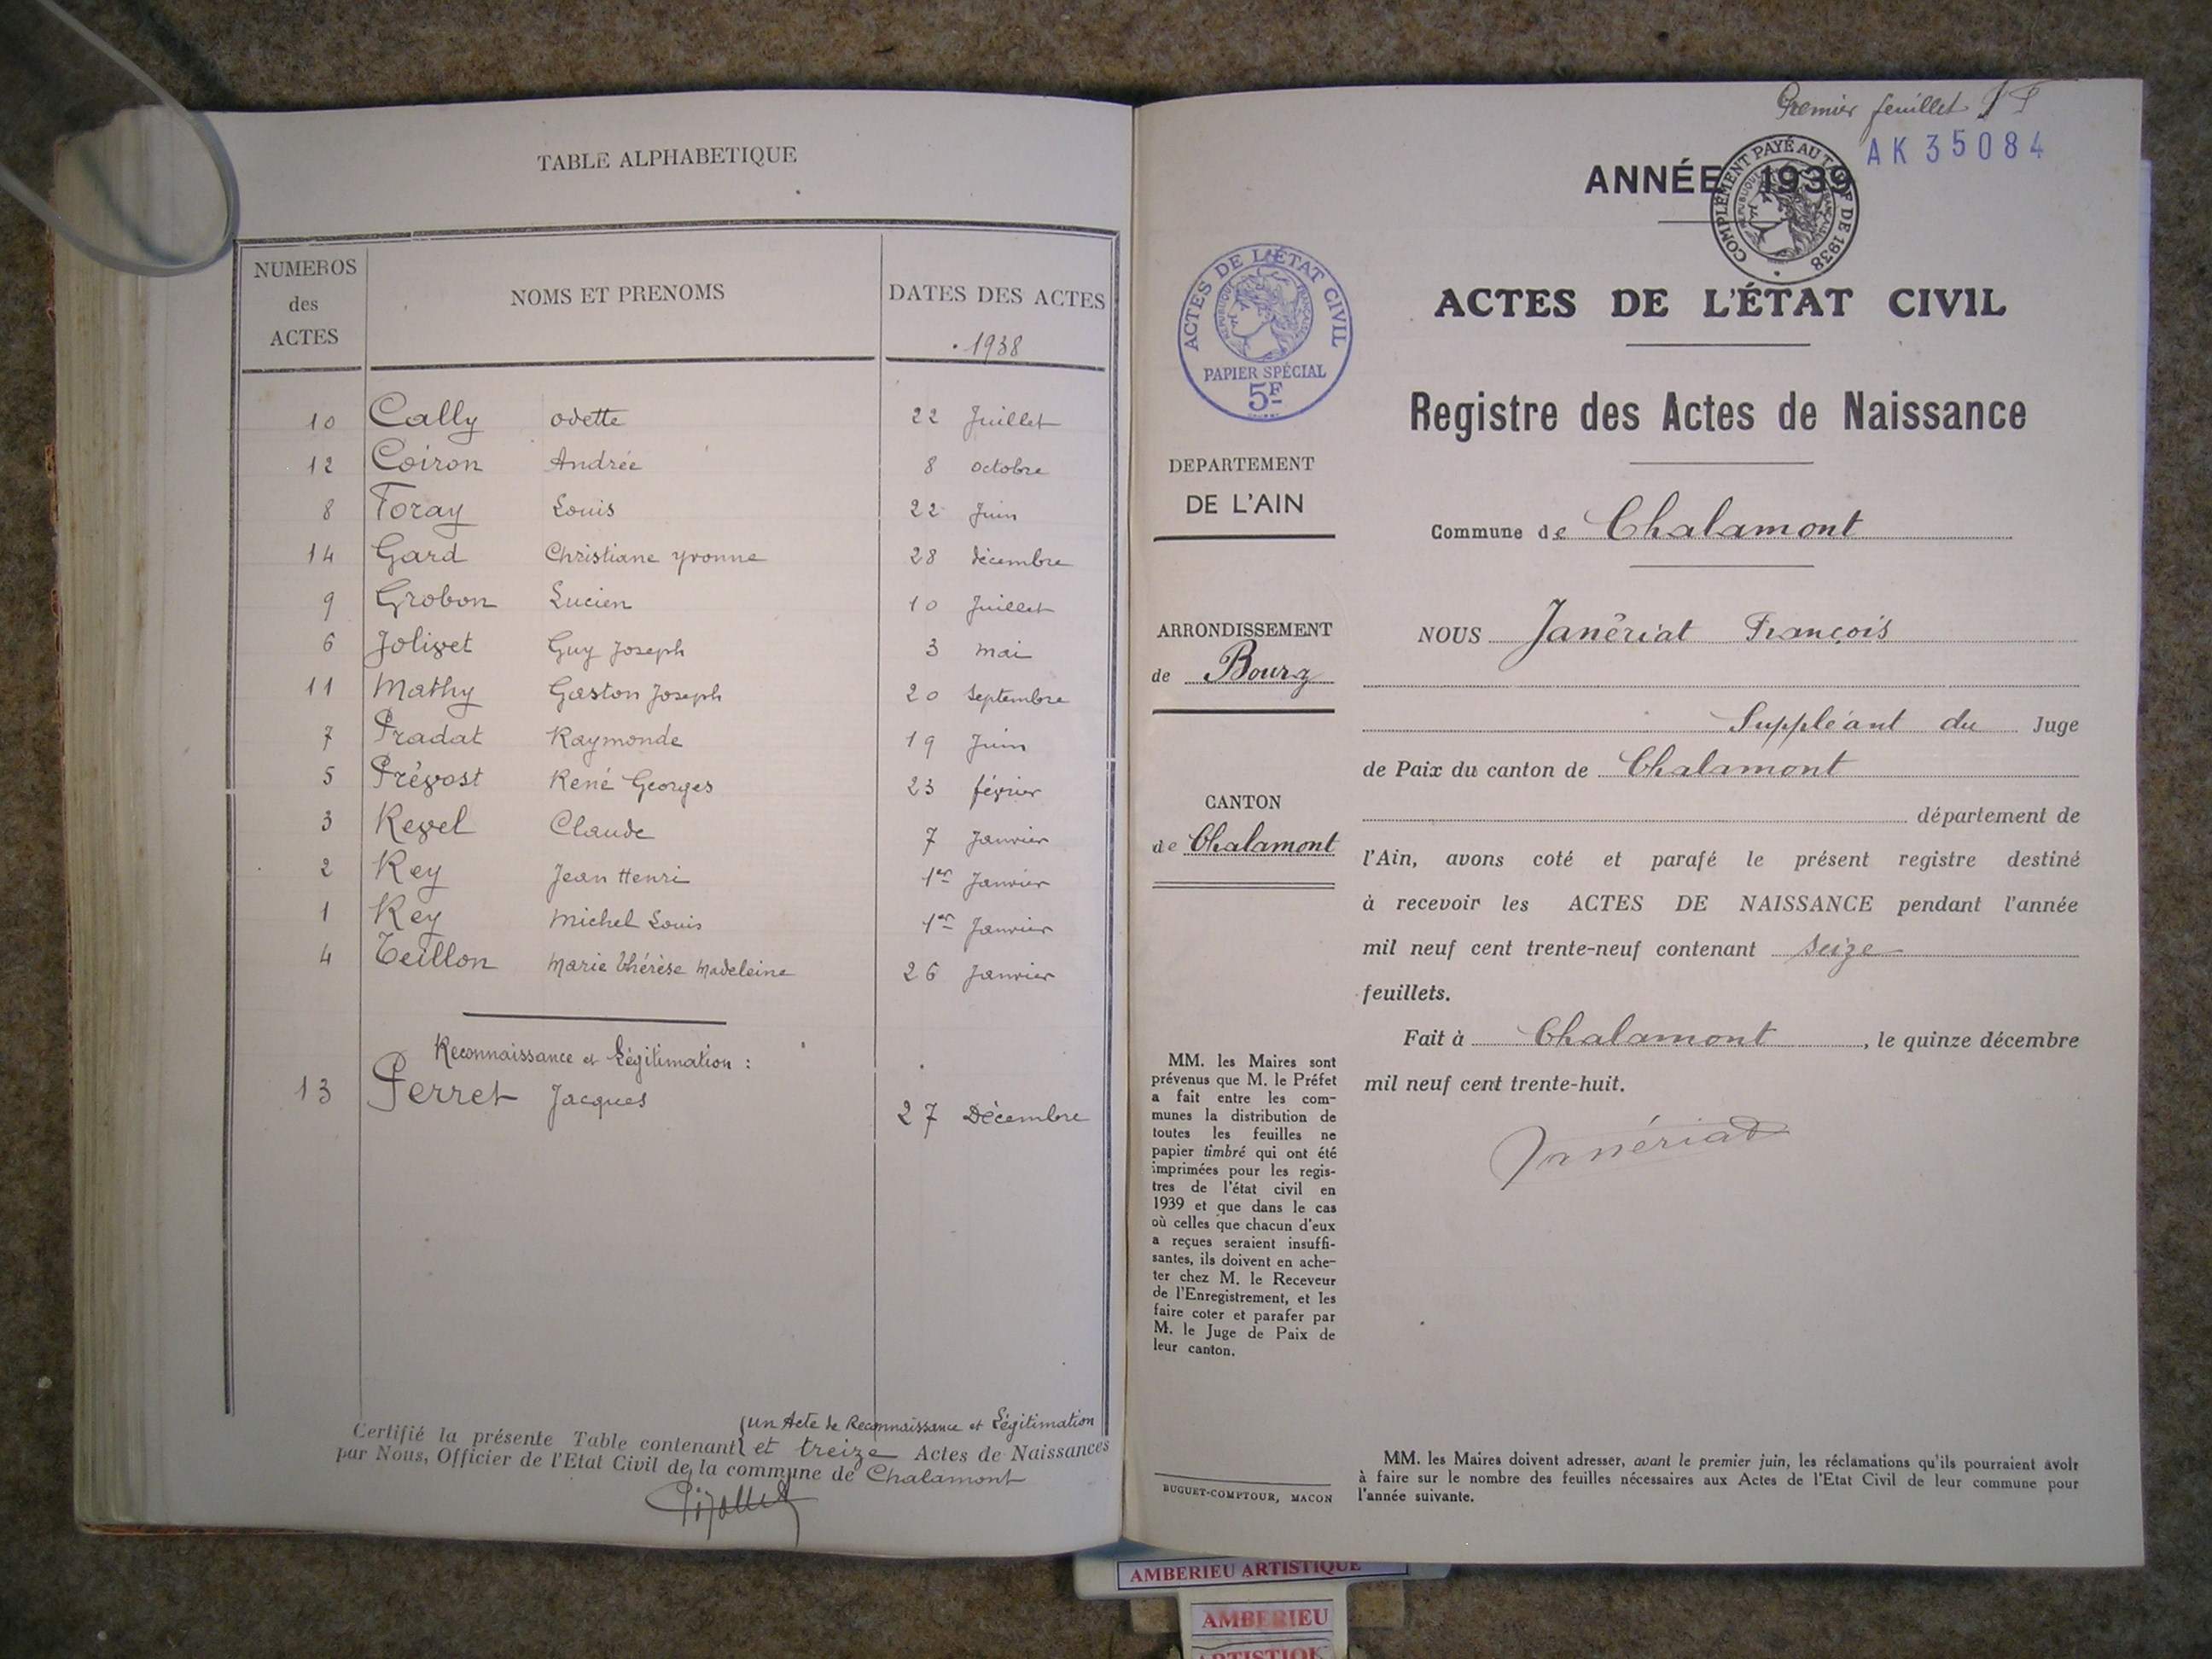 TABLE ALPHABETIQUE
NUMEROS des ACTES
NOMS ET PRENOMS
DATES DES ACTES
1938
10 Cally Odette 22 Juillet
12 Coiron Andrée 8 octobre
8 Foray Louis 22 Juin
14 Gard Christiane Yvonne 28 décembre
9 Grobon Lucien 10 Juillet
6 Jolivet Guy Joseph 3 mai
11 Mathy Gaston Joseph 20 Septembre
7 Pradat Raymonde 19 Juin
5 Prévost René Georges 23 février
3 Revel Claude 7 Janvier
2 Rey Jean Henri 1er Janvier
1 Rey Michel Louis 1er Janvier
4 Teillon Marie Thérèse Madeleine 26 Janvier
Reconnaissance et Légitimation :
13 Perret Jacques 27 Décembre
un Acte de Reconnaissance et Légitimation
Certifié la présente Table contenant et treize Actes de Naissances
par Nous, Officier de l'Etat Civil de la commune de Chalamont
Premier feuillet
AK 35084
ANNÉE 1939
COMPLÉMENT PAYÉ AU TARIF DE 1938
RÉPUBLIQUE FRANÇAISE
ACTES DE L'ÉTAT CIVIL
RÉPUBLIQUE FRANÇAISE
PAPIER SPÉCIAL
5F
ACTES DE L'ÉTAT CIVIL
Registre des Actes de Naissance
DEPARTEMENT
DE L'AIN
Commune de Chalamont
ARRONDISSEMENT
de Bourg
CANTON
de Chalamont
NOUS Janériat François
Suppléant du Juge
de Paix du canton de Chalamont
département de
l'Ain, avons coté et parafé le présent registre destiné
à recevoir les ACTES DE NAISSANCE pendant l'année
mil neuf cent trente-neuf contenant seize
feuillets.
Fait à Chalamont, le quinze décembre
mil neuf cent trente-huit.
Janériat
MM. les Maires sont
prévenus que M. le Préfet
a fait entre les com-
munes la distribution de
toutes les feuilles ne
papier timbré qui ont été
imprimées pour les regis-
tres de l'état civil en
1939 et que dans le cas
où celles que chacun d'eux
a reçues seraient insuffi-
santes, ils doivent en ache-
ter chez M. le Receveur
de l'Enregistrement, et les
faire coter et parafer par
M. le Juge de Paix de
leur canton.
BUGUET-COMPTOUR, MACON
MM. les Maires doivent adresser, avant le premier juin, les réclamations qu'ils pourraient avoir
à faire sur le nombre des feuilles nécessaires aux Actes de l'Etat Civil de leur commune pour
l'année suivante.
AMBERIEU ARTISTIQUE
AMBERIEU